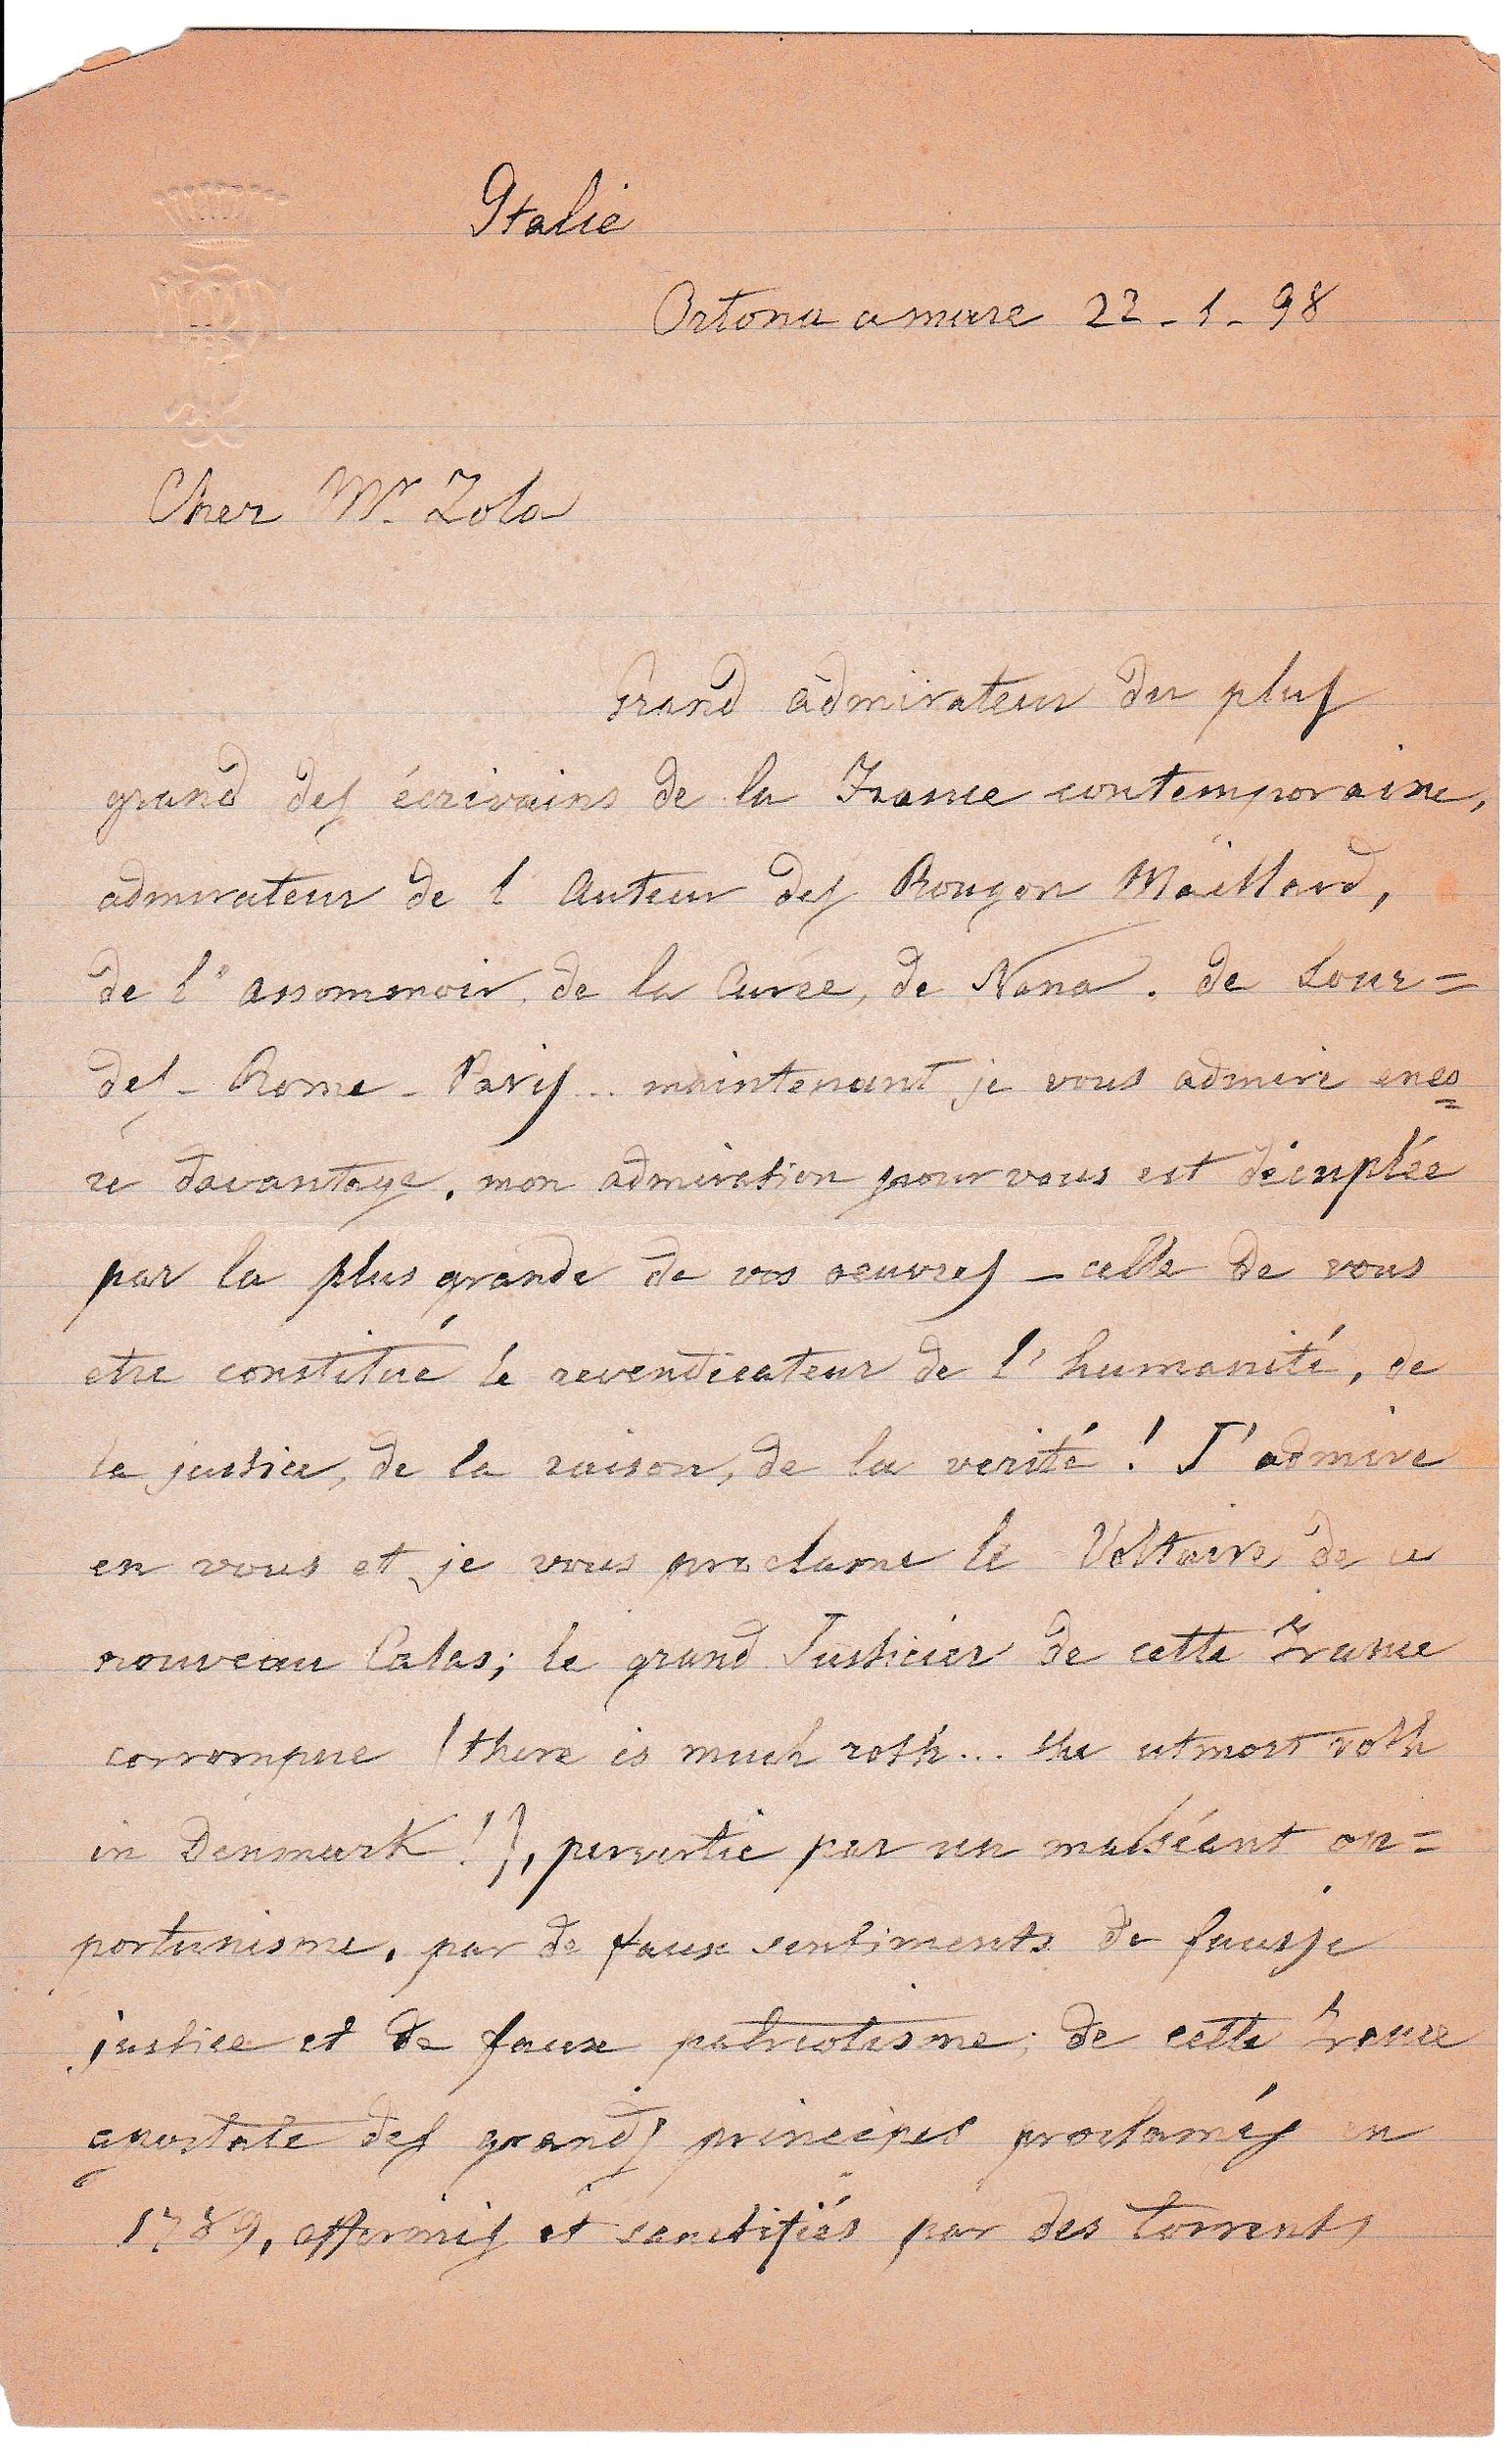 Italie
Ortona a mare 22-1-98
Cher Mr Zola
Grand admirateur du plus
grand des écrivains de la France contemporaine,
admirateur de l'Auteur des Rougon Maillard,
de l'assommoir, de la Curée, de Nana. de Lour=
des - Rome - Paris... maintenant je vous admire enco
re davantage, mon admiration pour vous est décuplée
par la plus grande de vos oeuvres - celle de vous
etre constitué le revendicateur de l'humanité, de
la justice, de la raison, de la verité! J'admire
en vous et je vous proclame le Voltaire de ce
nouveau Calas; le grand Justicier de cette France
corrompue (there is much roth... the utmost roth
in Denmark!), pervertie par un malséant op=
portunisme, par de faux sentiments de fausse
justice et de faux patriotisme; de cette France
apostate des grands principes proclamés en
1789, affermis et sanctifiés par des torrents